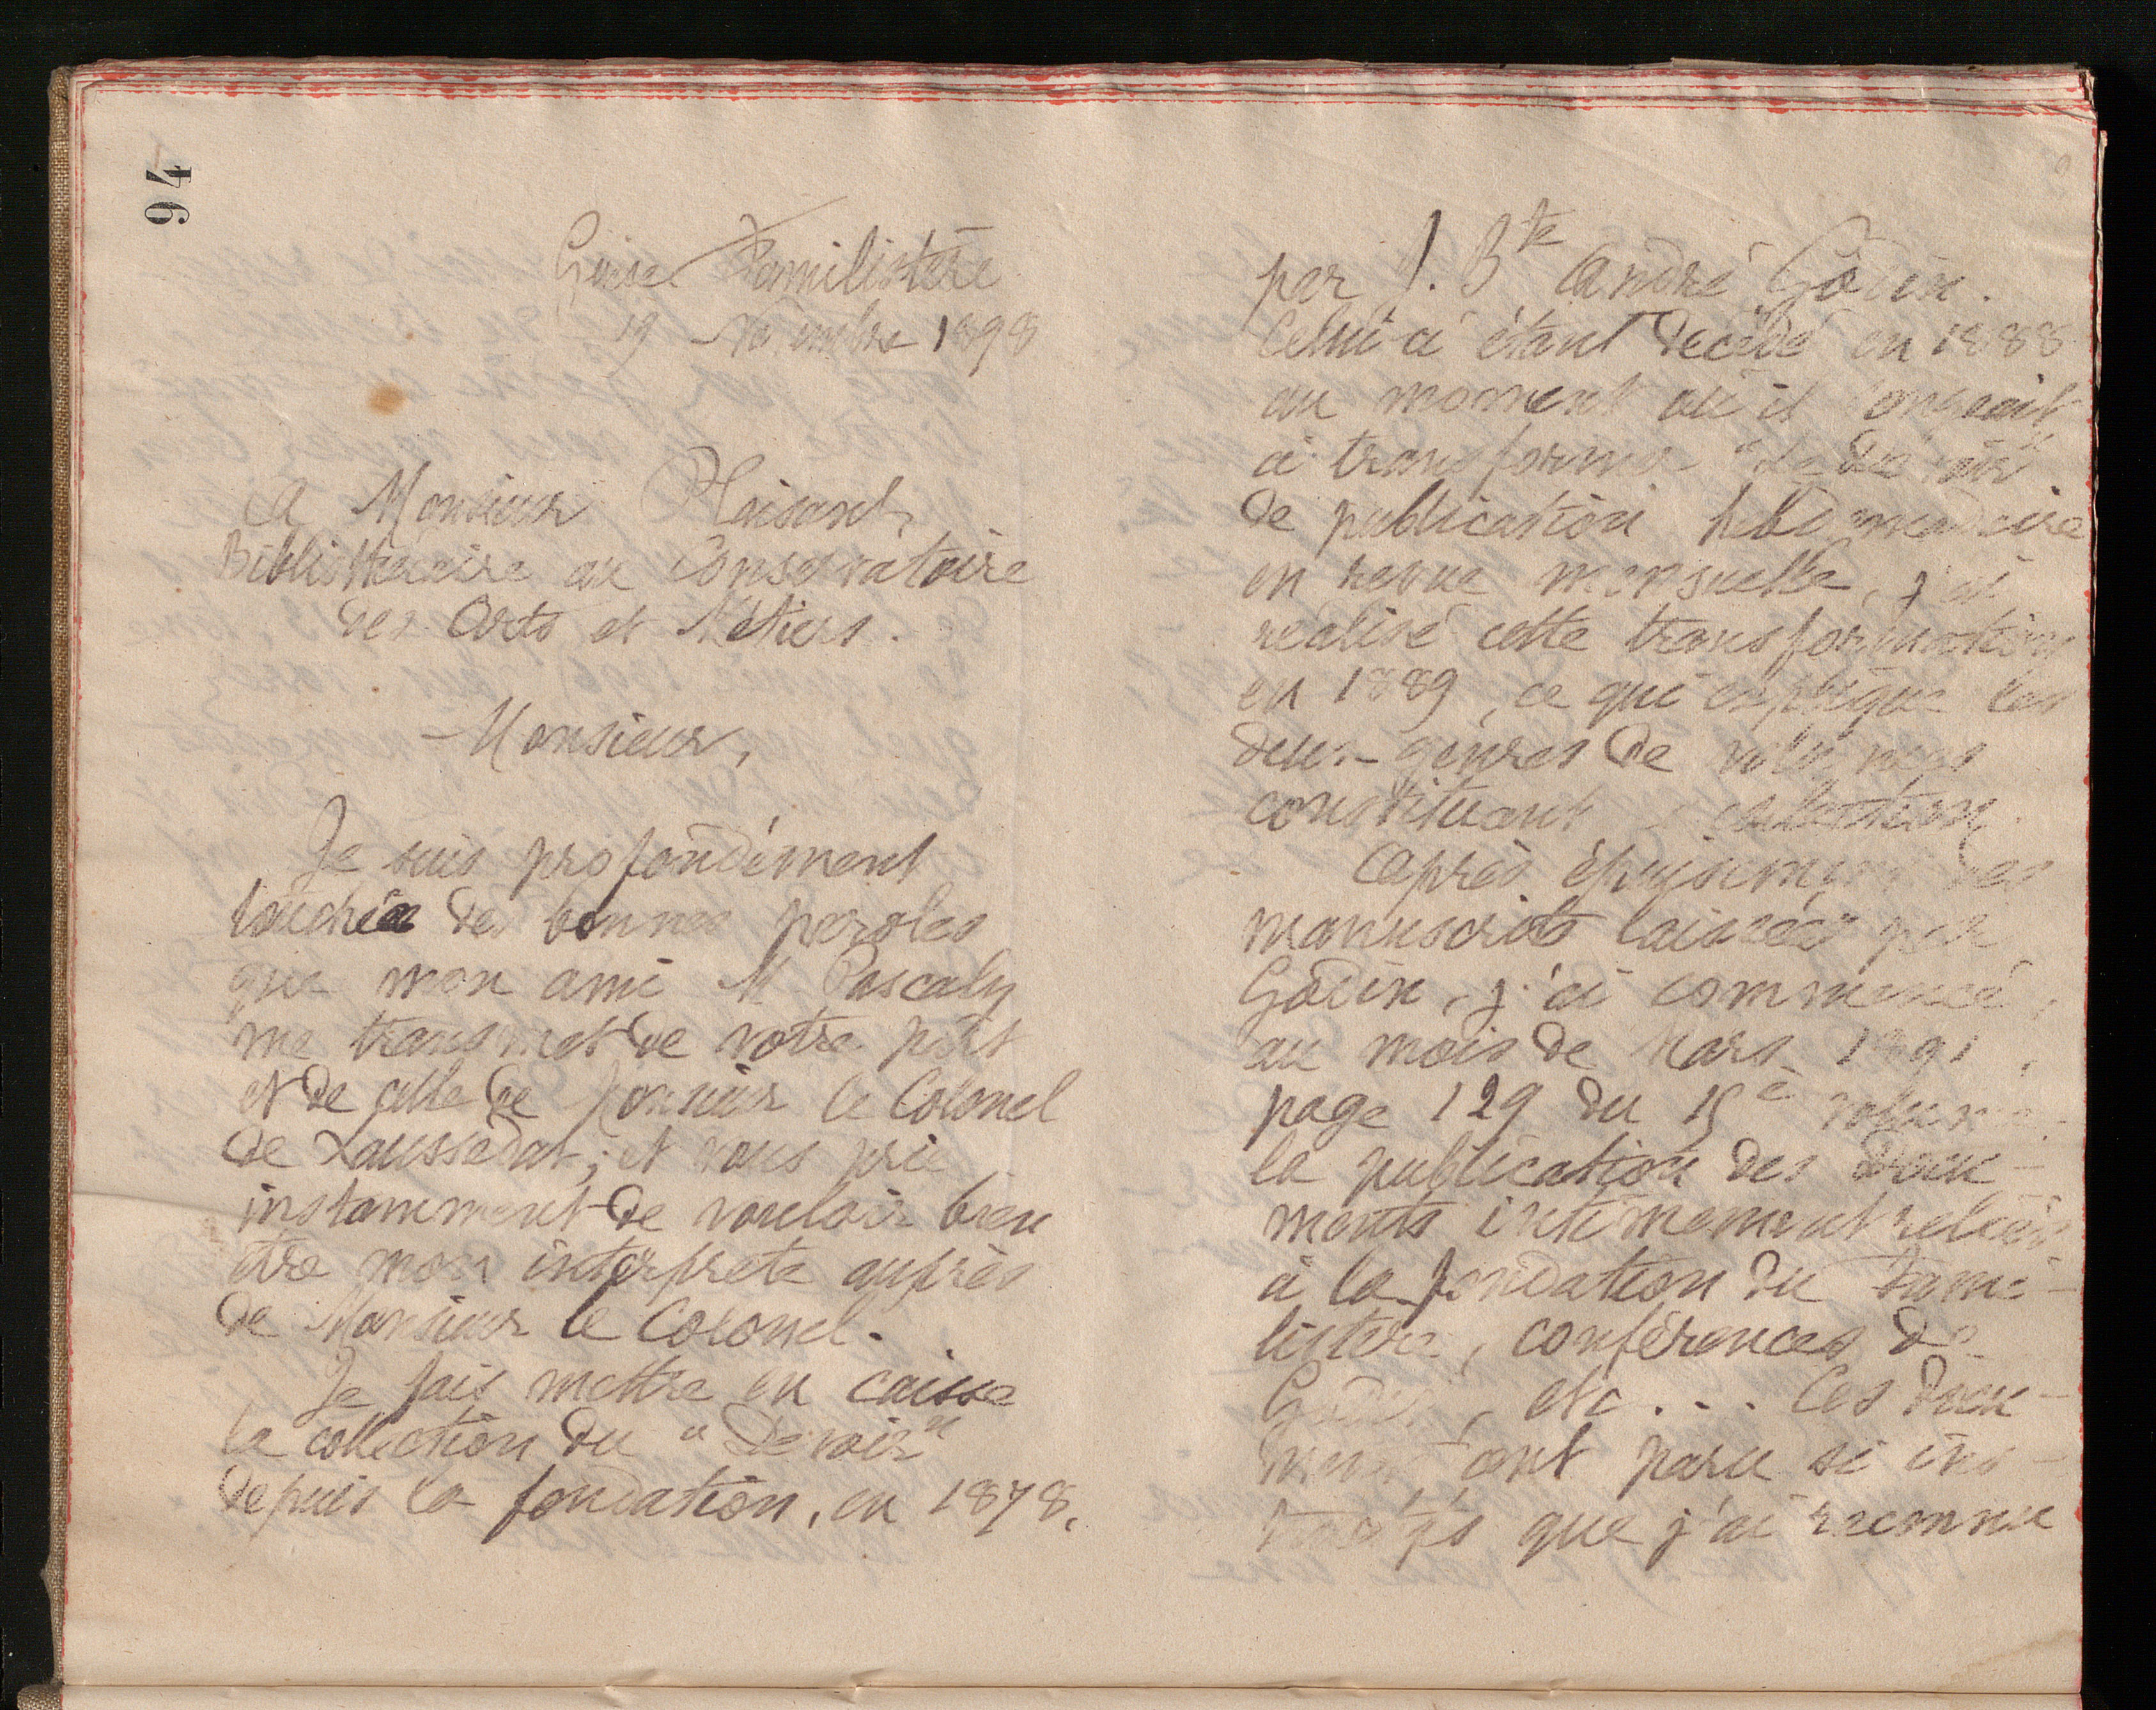 94
Guise Familistère
19 Novembre 1898
A Monsieur Plaisant
Bibliothécaire au Conservatoire
des Arts et Métiers.
Monsieur,
Je suis profondément
touchée des bonnes paroles
que mon ami M. Pascaly
me transmet de votre part
et de celle de Monsieur le Colonel
de Laussedat, et vous prie
instamment de vouloir bien
être mon interprète auprès
de Monsieur le Colonel.
Je fais mettre en caisse
la collection du "Devoir"
depuis la fondation, en 1878,
par J. Bte André Godin.
Celui-ci étant décédé en 1888
au moment où il songeait
à transformer "Le Devoir"
de publication hebdomadaire
en revue mensuelle, j'ai
réalisé cette transformation
en 1889, ce qui explique les
deux genres de volumes
constituant collection.
Après épuisement des
manuscrits laissés par
Godin, j'ai commencé,
au mois de Mars 1891,
page 129 du 15e volume
la publication des docu-
ments intimement reliés
à la fondation du Fami-
listère, conférences de
Godin, etc... Ces docu-
ments ont paru si ins-
tructifs que j'ai reconnu